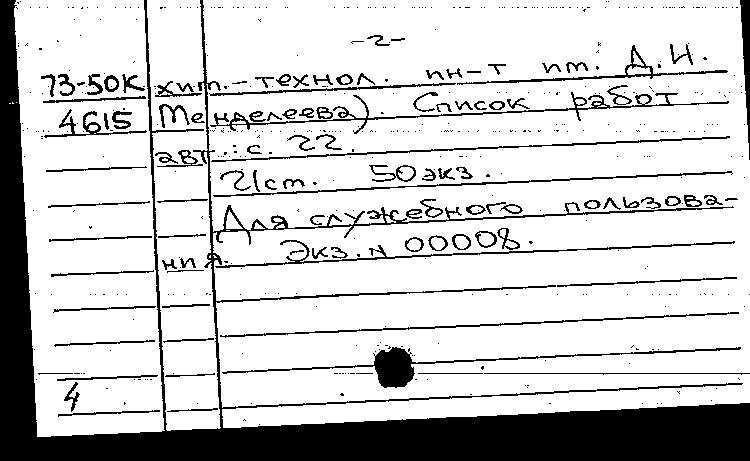 -2-
73-50К хим.-технол. ин-т им. Д.И.
4615 Менделеева). Список работ
авт.: с. 22.
21 см. 50 экз.
Для служебного пользова-
ния. Экз. N 00008.
4